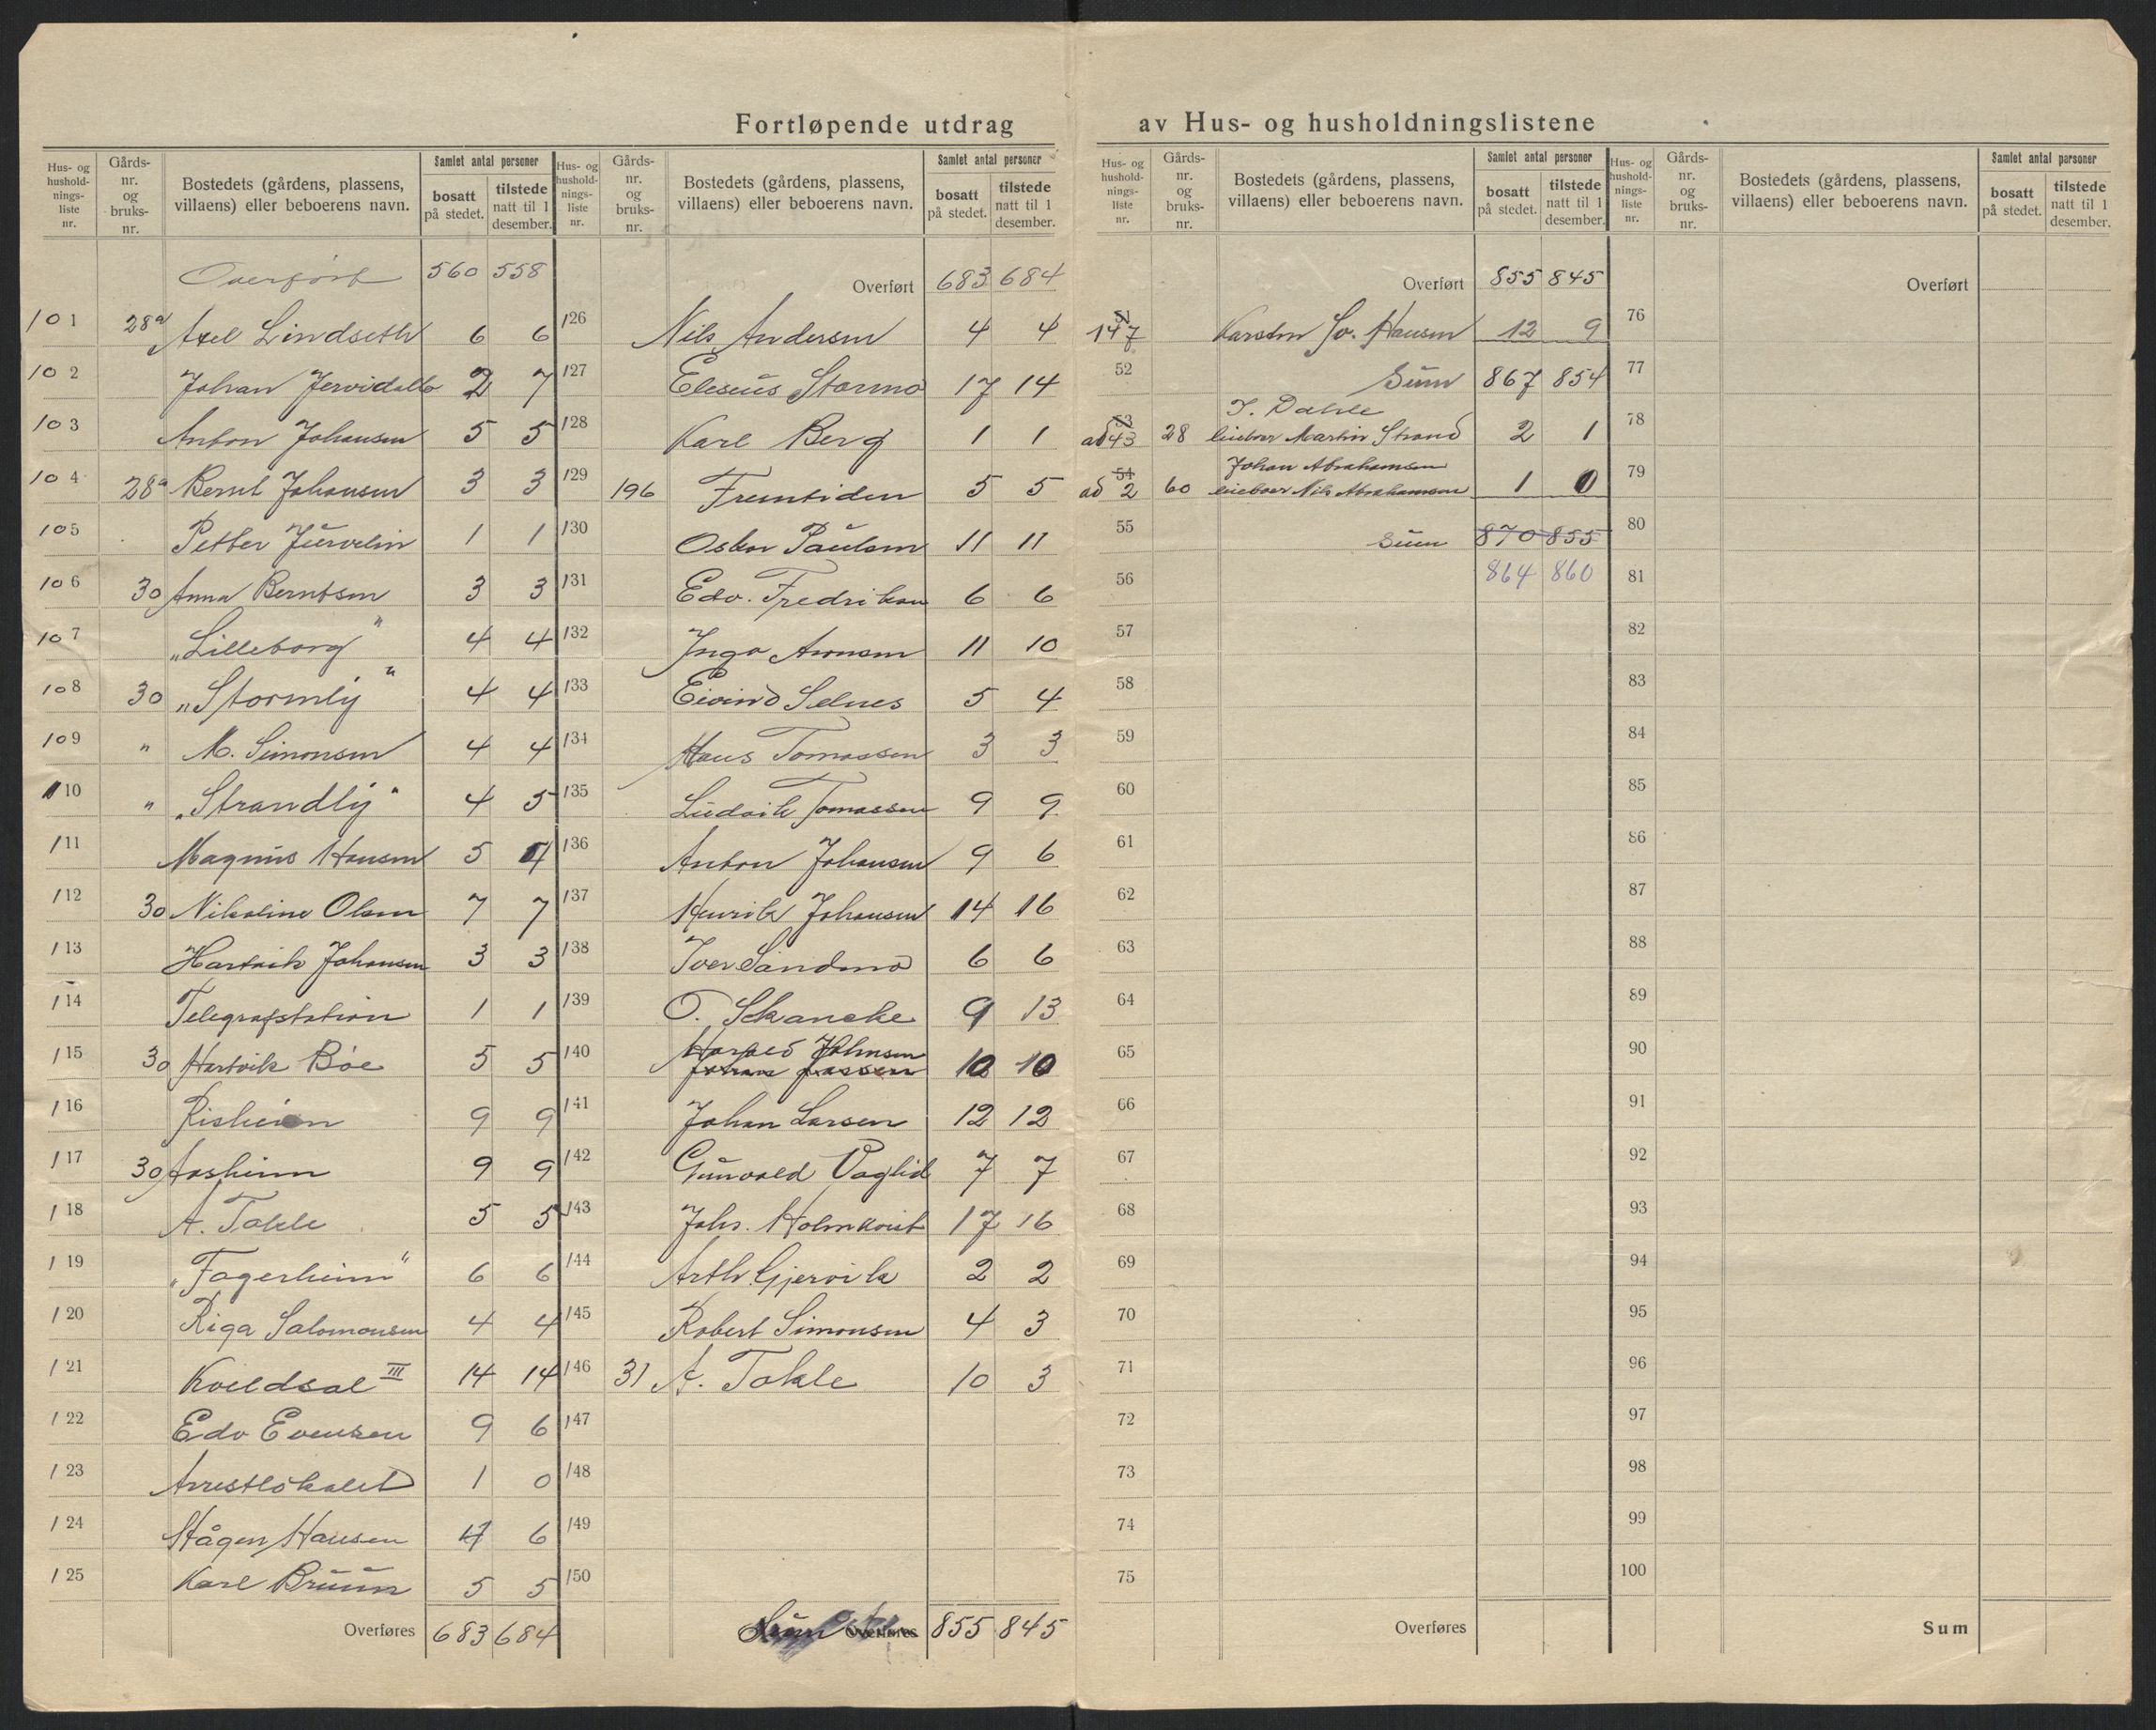 Fortløpende utdrag av Hus- og husholdningslistene
Hus- og husholdnings-liste nr. | Gårds-nr. og bruks-nr. | Bostedets (gårdens, plassens, villaens) eller beboerens navn. | Samlet antal personer bosatt på stedet. | tilstede natt til 1 desember.
Overført 560 558
101 28a Axel Lindseth 6 6
102 Johan Jervidalbo 2 7
103 Anton Johansen 5 5
104 28a Bernt Johansen 3 3
105 Petter Jürvelin 1 1
106 30 Anna Berntsen 3 3
107 "Lilleborg" 4 4
108 30 "Stormly" 4 4
109 " M. Simonsen 4 4
110 " "Strandly" 4 5
111 Magnus Hansen 5 4
112 30 Nikoline Olsen 7 7
113 Hartvik Johansen 3 3
114 Telegrafstation 1 1
115 30 Hartvik Bøe 5 5
116 Risheim 9 9
117 30 Aasheim 9 9
118 A. Takle 5 5
119 "Fagerheim" 6 6
120 Riga Salomonsen 4 4
121 Kveldsol III 14 14
122 Edv Evensen 9 6
123 Arrestlokalet 1 0
124 Hågen Hansen 4 6
125 Karl Bruun 5 5
Overføres 683 684
Hus- og husholdnings-liste nr. | Gårds-nr. og bruks-nr. | Bostedets (gårdens, plassens, villaens) eller beboerens navn. | Samlet antal personer bosatt på stedet. | tilstede natt til 1 desember.
Overført 683 684
126 Nils Andersen 4 4
127 Eleseus Stormo 17 14
128 Karl Berg 1 1
129 196 Fremtiden 5 5
130 Oskar Paulsen 11 11
131 Edv. Fredriksen 6 6
132 Inga Aronsen 11 10
133 Eivind Selnes 5 4
134 Hans Tomassen 3 3
135 Ludvik Tomassen 9 9
136 Anton Johansen 9 6
137 Henrik Johansen 14 16
138 Iver Sandmo 6 6
139 O. Skancke 9 13
140 Harald Johnsen 10 10
141 Johan Larsen 12 12
142 Gunvald Vaglid 7 7
143 Johs. Holmkvist 17 16
144 Arth. Gjervik 2 2
145 Robert Simonsen 4 3
146 31 A. Takle 10 3
147
148
149
150
Sum Overføres 855 845
Hus- og husholdnings-liste nr. | Gårds-nr. og bruks-nr. | Bostedets (gårdens, plassens, villaens) eller beboerens navn. | Samlet antal personer bosatt på stedet. | tilstede natt til 1 desember.
Overført 855 845
51 147 Karsten Sv. Hansen 12 9
52 Sum 867 854
J. Dahle
53 ad 43 28 leieboer Martin Strand 2 1
Johan Abrahamsen
54 ad 2 60 leieboer Nils Abrahamsen 1 0
55 Sum 870 855
56 864 860
57
58
59
60
61
62
63
64
65
66
67
68
69
70
71
72
73
74
75
Overføres
Hus- og husholdnings-liste nr. | Gårds-nr. og bruks-nr. | Bostedets (gårdens, plassens, villaens) eller beboerens navn. | Samlet antal personer bosatt på stedet. | tilstede natt til 1 desember.
Overført
76
77
78
79
80
81
82
83
84
85
86
87
88
89
90
91
92
93
94
95
96
97
98
99
100
Sum